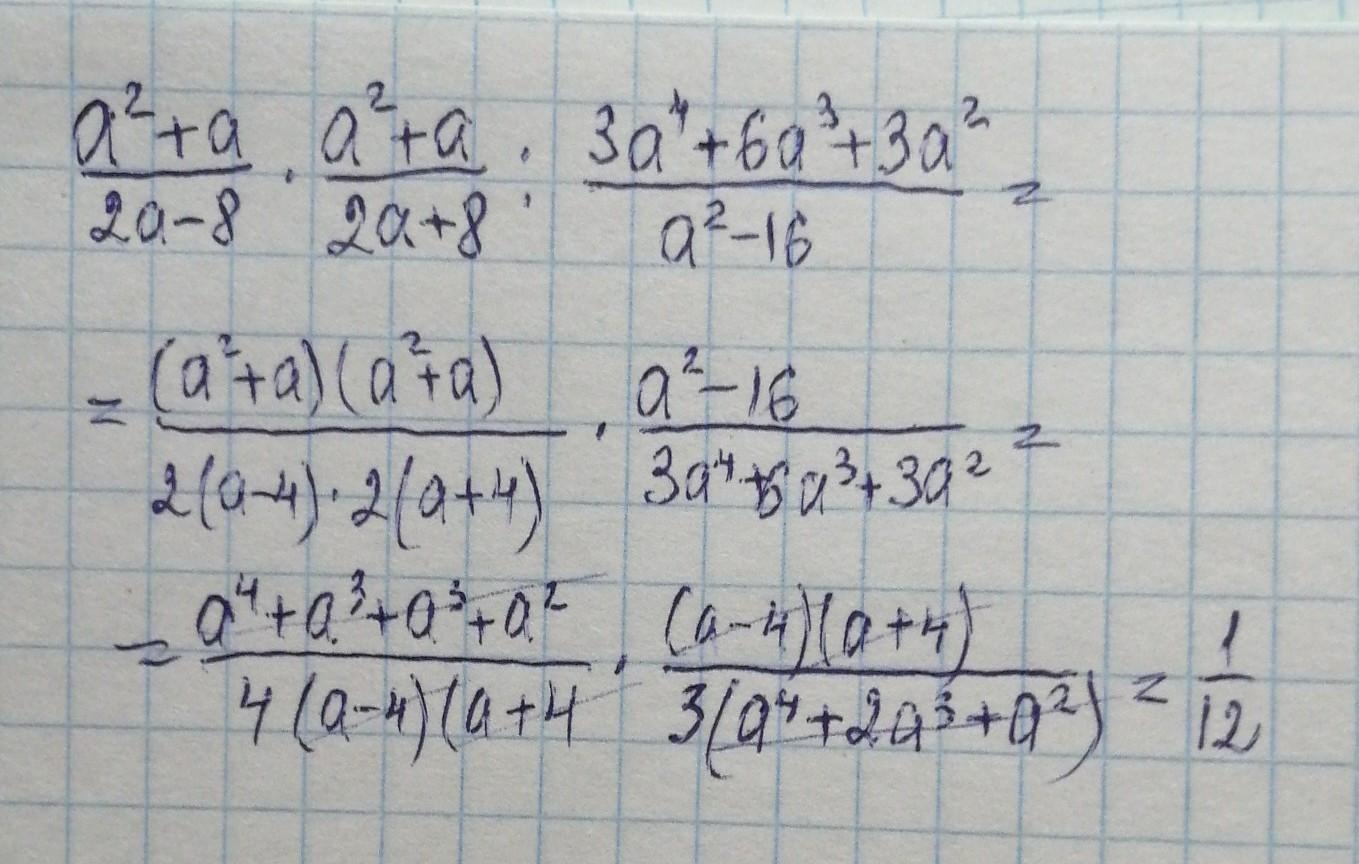 (a²+a)/(2a-8) · (a²+a)/(2a+8) : (3a⁴+6a³+3a²)/(a²-16) =
= ((a²+a)(a²+a))/(2(a-4)·2(a+4)) · (a²-16)/(3a⁴+6a³+3a²) =
= (a⁴+a³+a³+a²)/(4(a-4)(a+4) · ((a-4)(a+4))/(3(a⁴+2a³+a²)) = 1/12